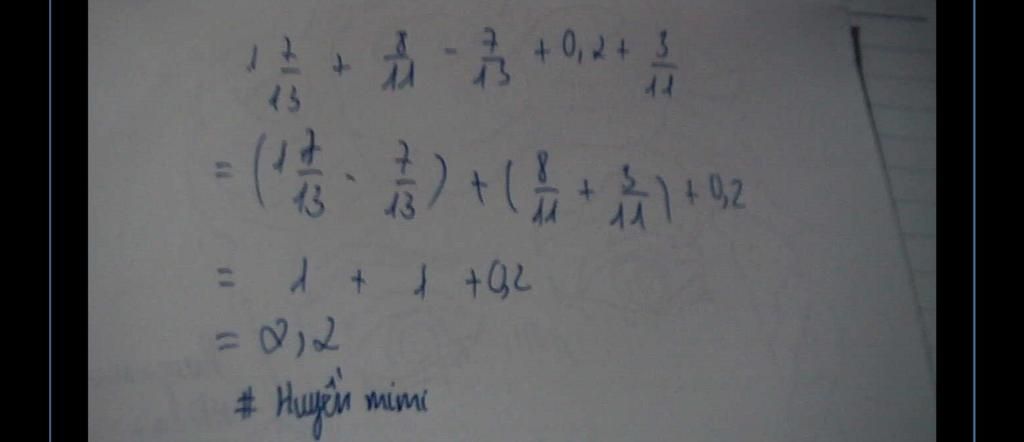 1 7/13 + 8/11 - 7/13 + 0,2 + 3/11
= (1 7/13 - 7/13) + (8/11 + 3/11) + 0,2
= 1 + 1 + 0,2
= 2,2
# Huyền mimi